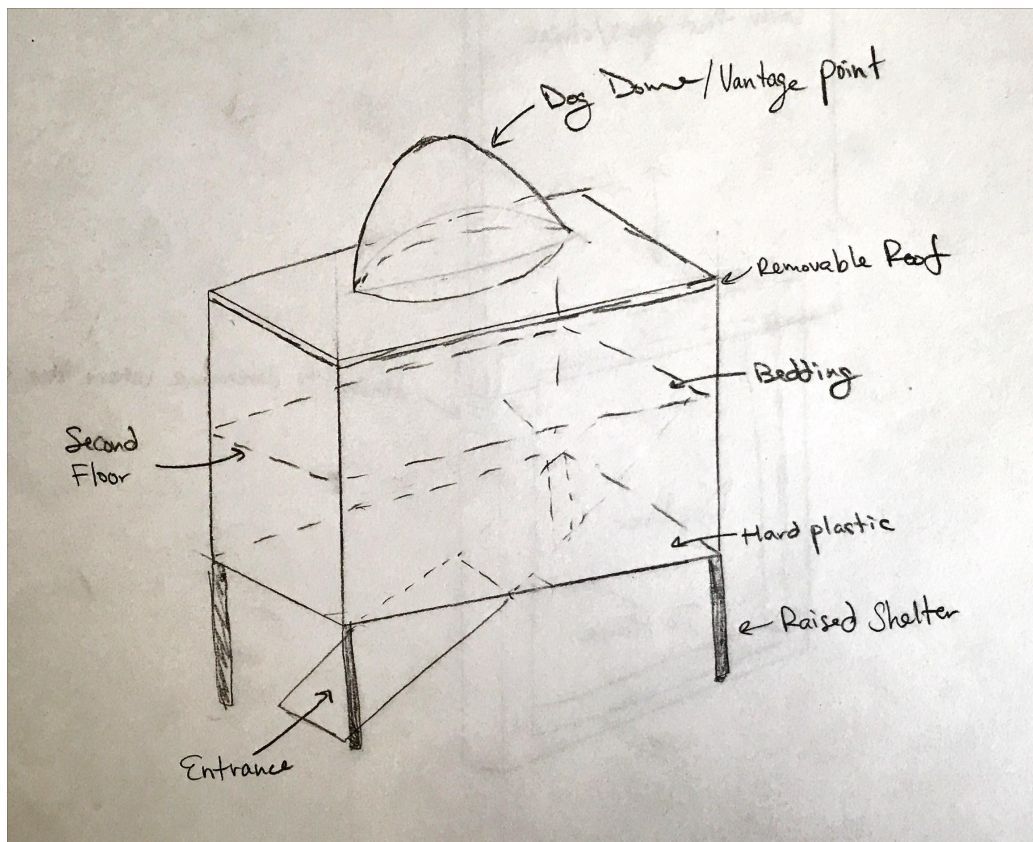 Dog Dome/Vantage point
Removable Roof
Bedding
Second
Floor
Hard plastic
Raised Shelter
Entrance